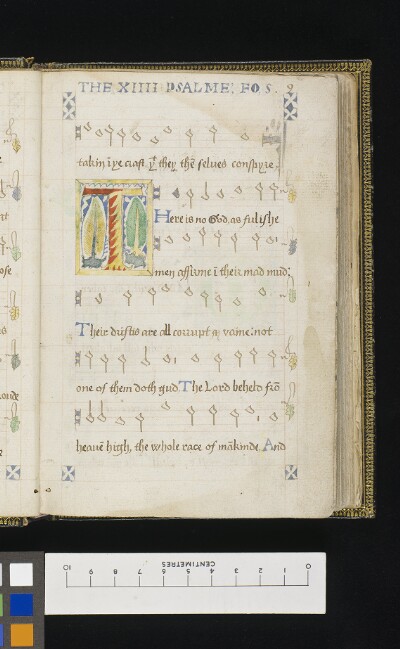 THE XIIII PSALME: FO S. 9
takin ī ye craft yt they thē selues conspyre.
T
Here is no God, as fulishe
men affirme ī their mad mīd:
Their driftis are all corrupt & vaine: not
one of them doth gud. The Lord beheld frō
heauē high, the whole race of mākinde. And
0 1 2 3 4 5 6 7 8 9 10
CENTIMETRES